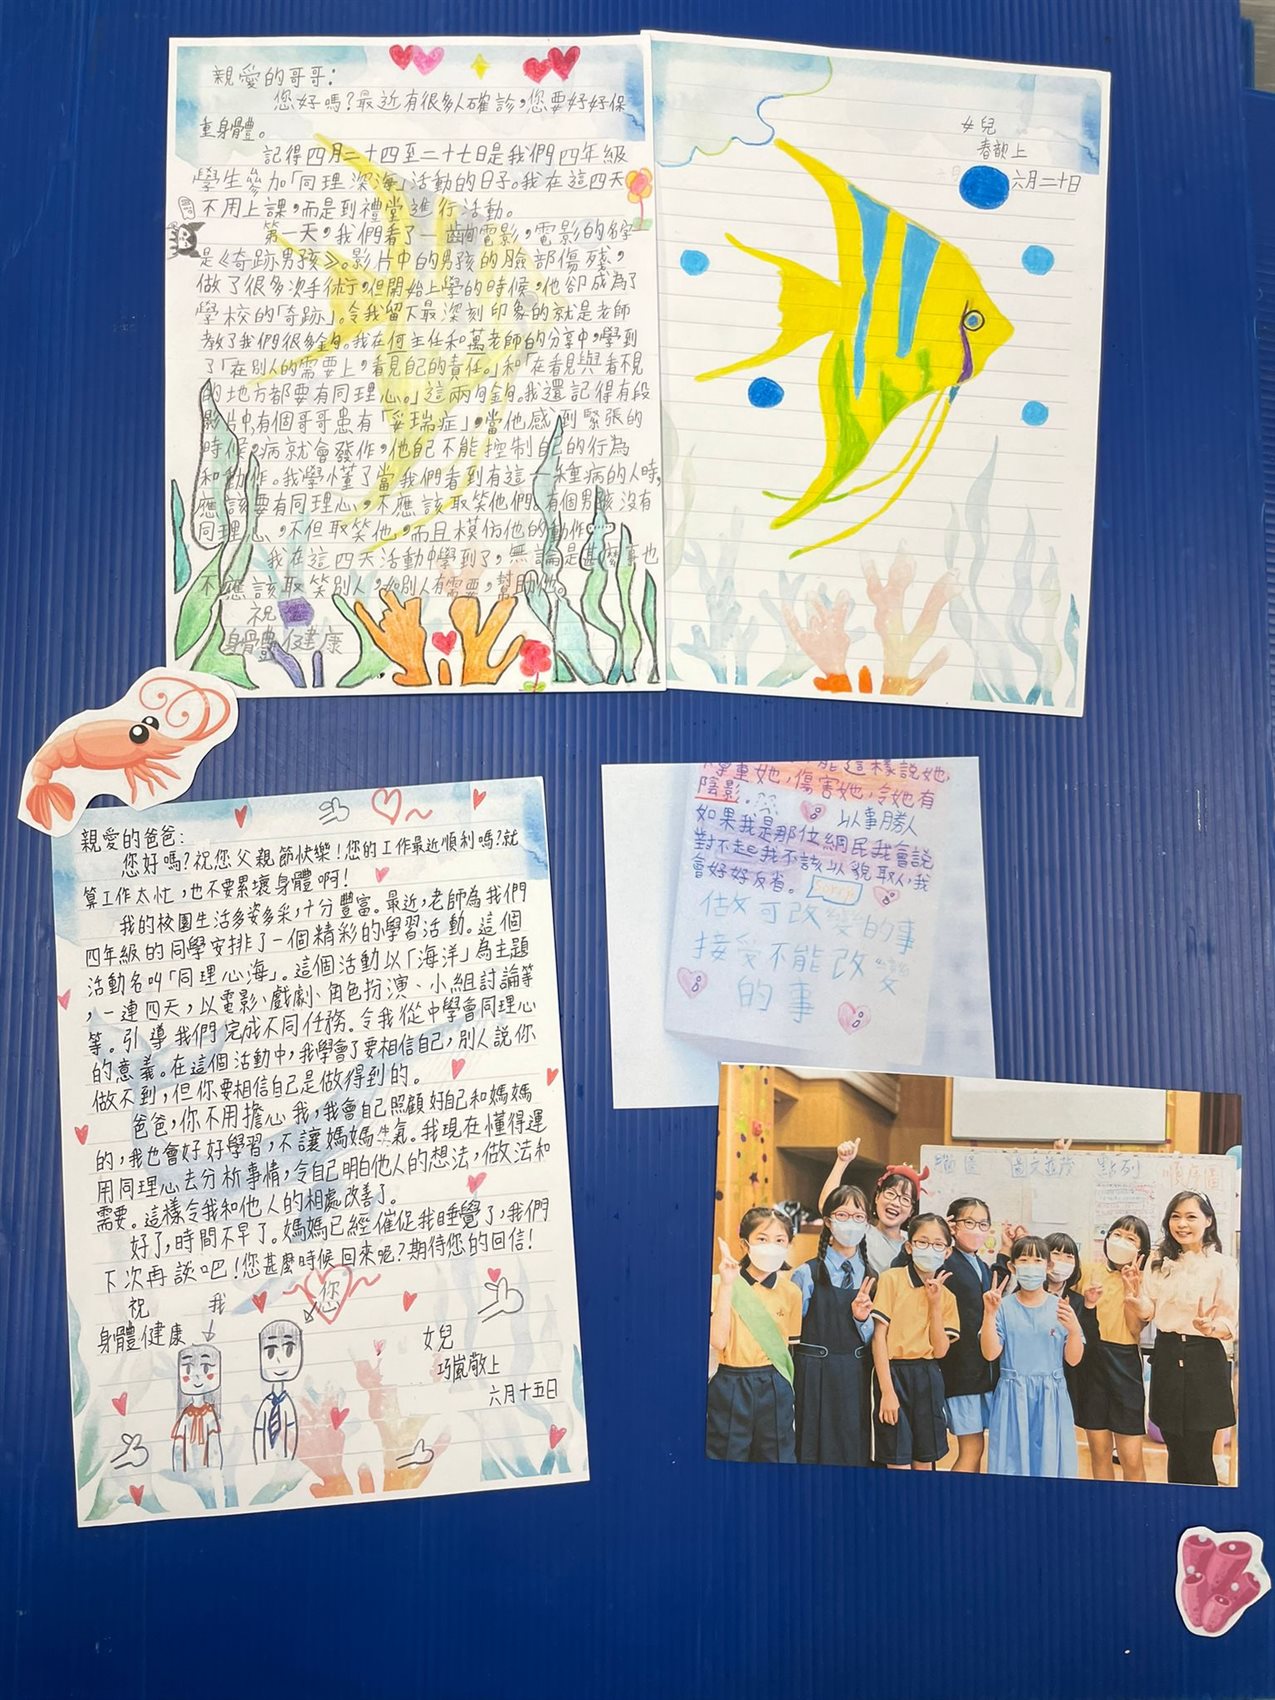 親愛的哥哥：
您好嗎？最近有很多人確診，您要好好保
重身體。
記得四月二十四至二十七日是我們四年級
學生參加「同理深海」活動的日子。我在這四天
不用上課，而是到禮堂進行活動。
第一天，我們看了一齣電影，電影的名字
是《奇跡男孩》。影片中的男孩的臉部傷殘，
做了很多次手術，但開始上學的時候，他卻成為了
學校的「奇跡」。令我留下最深刻印象的就是老師
教了我們很多金句。我在何主任和萬老師的分享中，學到
了「在別人的需要上，看見自己的責任。」和「在看見與看不見
的地方都要有同理心。」這兩句金句。我還記得有段
影片中有個哥哥患有「妥瑞症」，當他感到緊張的
時候，病就會發作，他自己不能控制自己的行為
和動作。我學懂了當我們看到有這一種病的人時，
應該要有同理心，不應該取笑他們。有個男孩沒有
同理心，不但取笑他，而且模仿他的動作……
我在這四天活動中學到了，無論是甚麼事也
不應該取笑別人，如別人有需要，幫助他。
祝
身體健康
女兒
春歆上
六月二十日
親愛的爸爸：
您好嗎？祝您父親節快樂！您的工作最近順利嗎？就
算工作太忙，也不要累壞身體啊！
我的校園生活多姿多采，十分豐富。最近，老師為我們
四年級的同學安排了一個精彩的學習活動。這個
活動名叫「同理心海」。這個活動以「海洋」為主題
，一連四天，以電影、戲劇、角色扮演、小組討論等
等。引導我們完成不同任務。令我從中學會同理心
的意義。在這個活動中，我學會了要相信自己，別人說你
做不到，但你要相信自己是做得到的。
爸爸，你不用擔心我，我會自己照顧好自己和媽媽
的，我也會好好學習，不讓媽媽生氣。我現在懂得運
用同理心去分析事情，令自己明白他人的想法，做法和
需要。這樣令我和他人的相處改善了。
好了，時間不早了。媽媽已經催促我睡覺了，我們
下次再談吧！您甚麼時候回來呢？期待您的回信！
祝
身體健康
我
您
女兒
巧嵐敬上
六月十五日
能這樣說她，
尊重她，傷害她，令她有
陰影。
以事勝人
如果我是那位網民我會說
對不起我不該以貌取人，我
會好好反省。
sorry
做可改變的事
接受不能改變
的事
圖文並茂
點列
順序圖